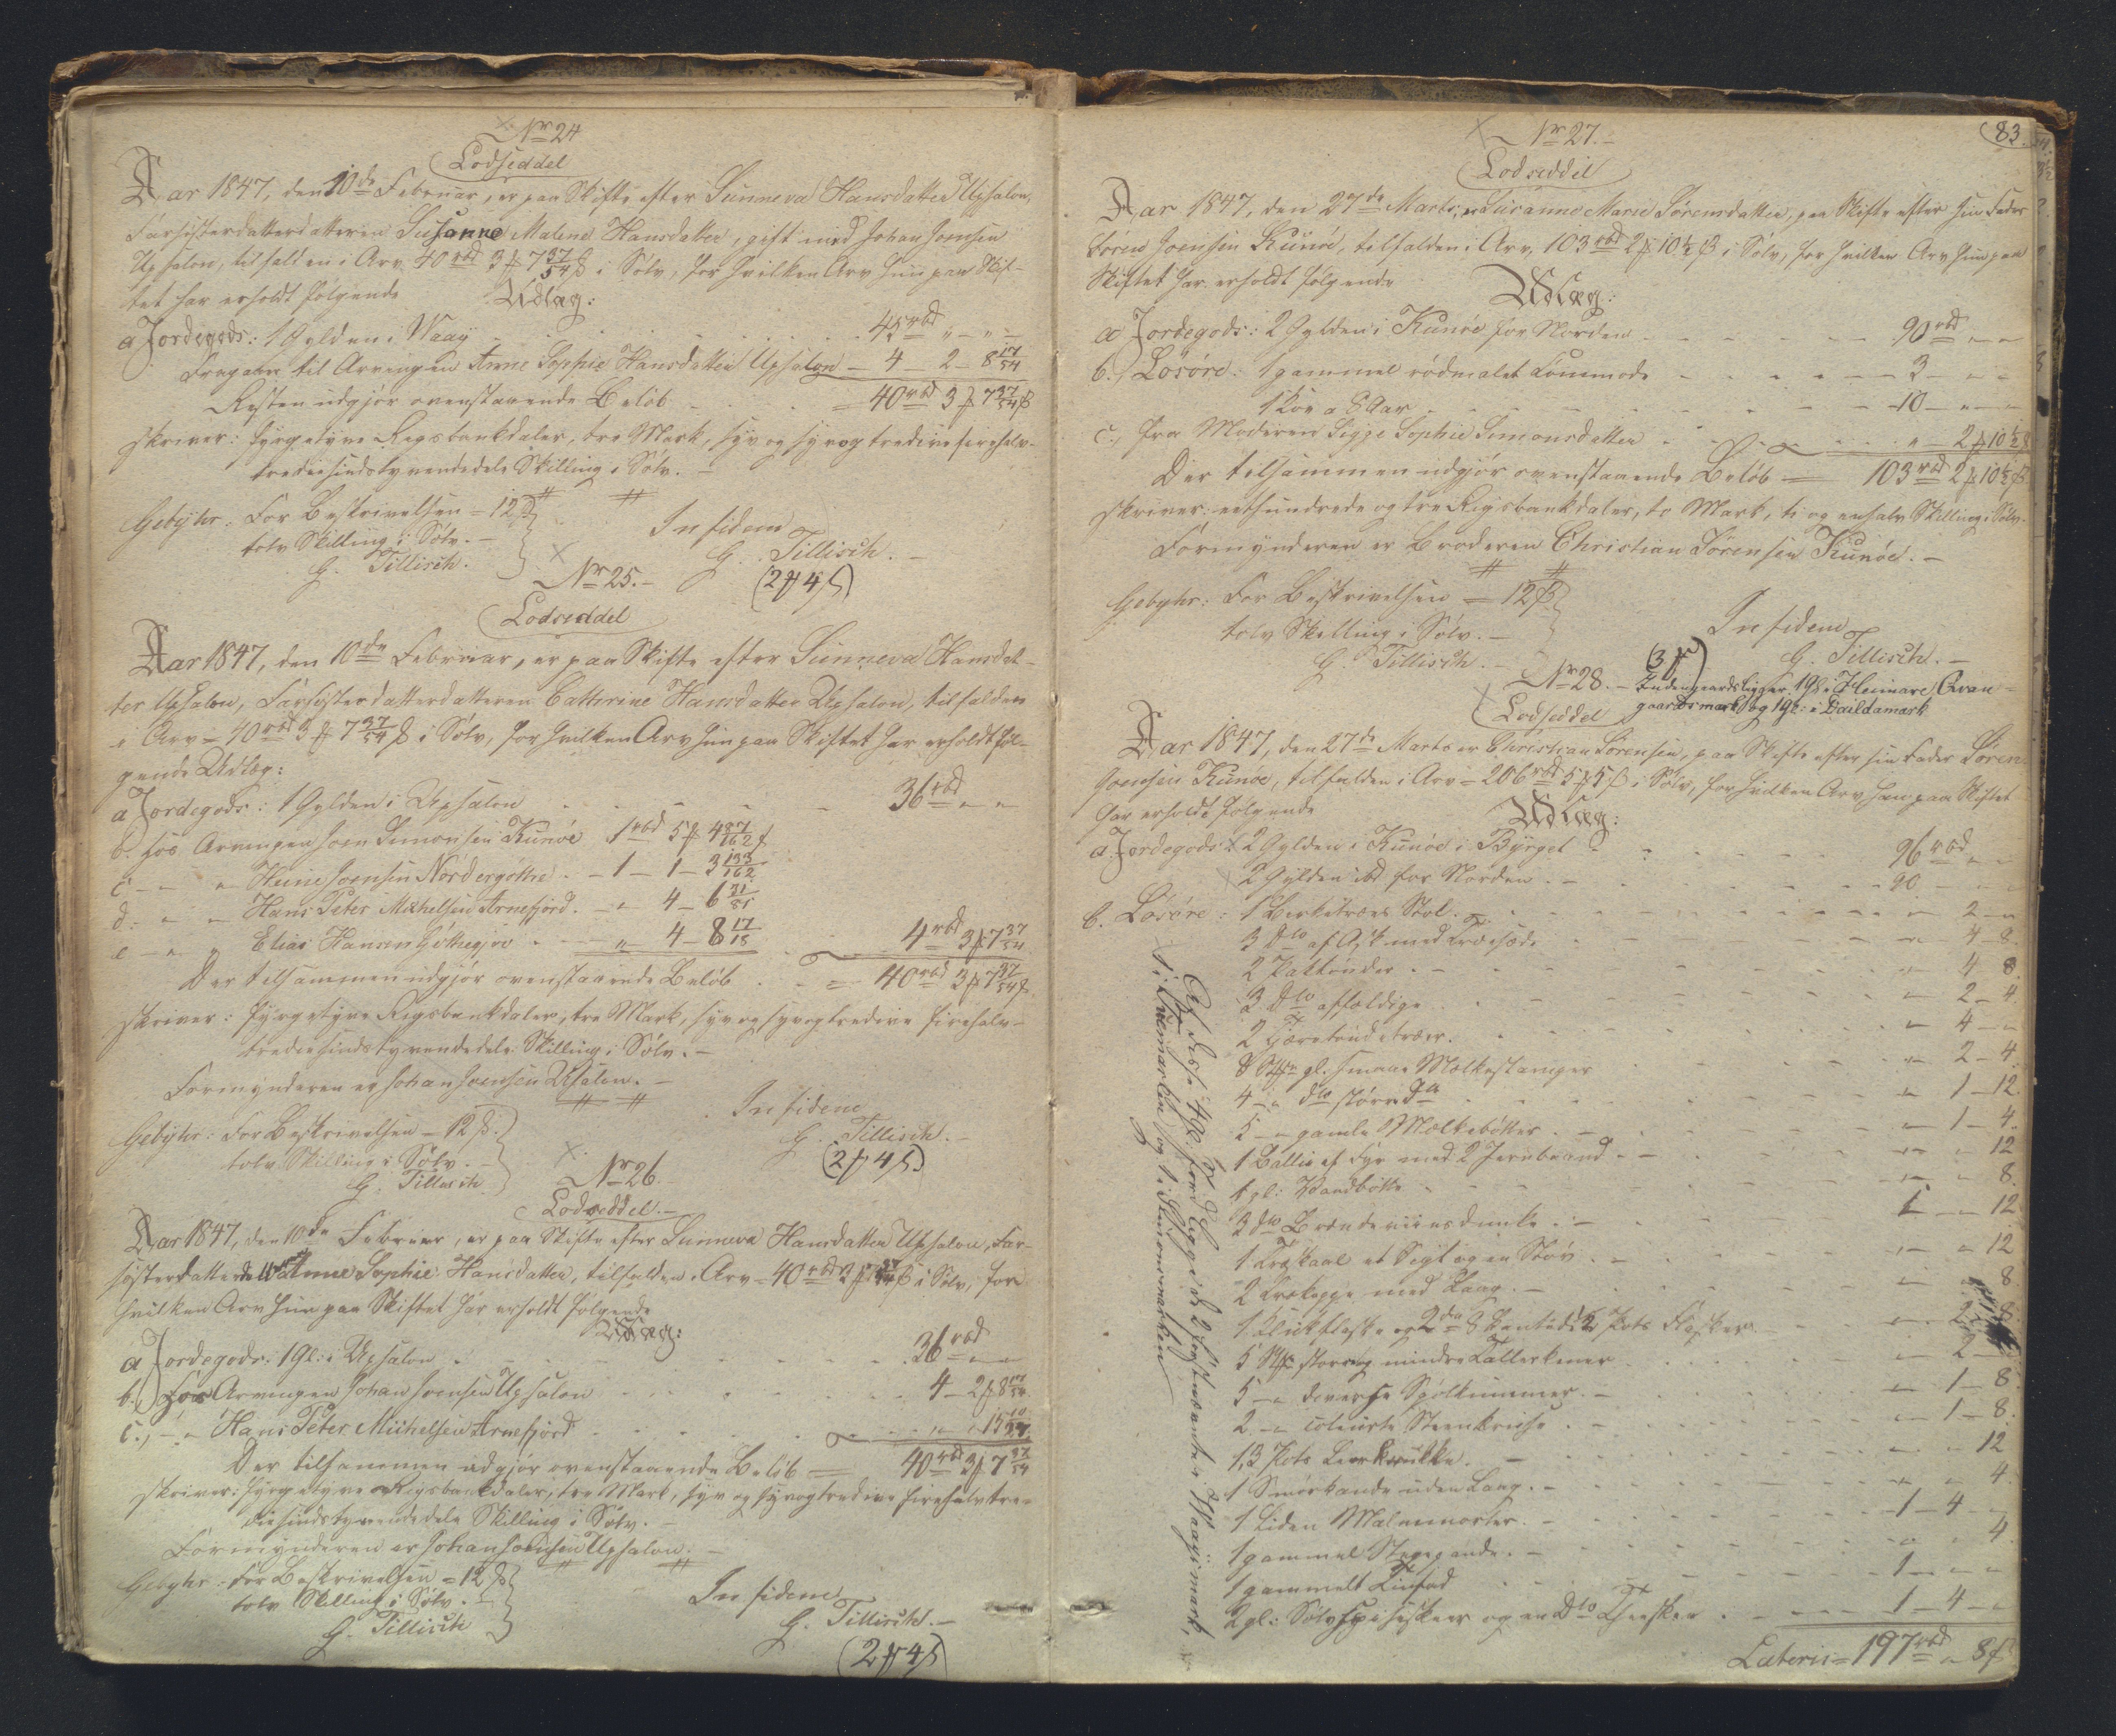 Nr 24
Lodseddel
Aar 1847, den 10de Februar, er paa Skifte efter Sunneva Hansdatter Upsalon,
Farsøsterdatterdatteren Susanne Malene Hansdatter, gift med Johan Joensen
Upsalon, tilfalden i Arv 40 rbd 3 ₥ 7 37/54 ß i Sølv, for hvilken Arv hun paa Skif-
tet har erholdt følgende Udlæg:
a Jordegods: 1 Gylden i Waaÿ 45 rbd " - " -
Fragaaer til Arvingen Anne Sophie Hansdatter Upsalon - 4 - 2 - 8 17/54
Resten udgjør ovenstaaende Beløb = 40 rbd 3 ₥ 7 37/54 ß
skriver: fyrgetyve Rigsbankdaler, tre Mark, syv og syvogtredive firehalv-
trediesindstyvendedele Skilling i Sølv. -
Gebyhr: For Beskrivelsen = 12 ß
tolv Skilling i Sølv. -
G. Tillisch.
In fidem
G. Tillisch. -
(2 ₥ 4 ß)
Nr 25. -
Lodseddel
Aar 1847, den 10de Februar, er paa Skifte efter Sunneva Hansdat-
ter Upsalon, Farsøsterdatterdatteren Cathrine Hansdatter Upsalon, tilfalden
i Arv = 40 rbd 3 ₥ 7 37/54 ß i Sølv, for hvilken Arv hun paa Skiftet har erholdt føl-
gende Udlæg:
a Jordegods: 1 Gylden i Upsalon 36 rbd " - "
b. hos Arvingen Joen Simonsen Kunøe 1 rbd 5 ₥ 4 87/162 ß
c - " - " Heine Joensen Nordergøthe - 1 - 1 - 3 133/162
d. - " - " Hans Peter Michelsen Arnefjord. - " 4 - 6 31/81
e - " - " Elias Hansen Gøthegjov - " - 4 - 8 17/18 4 rbd 3 ₥ 7 37/54
Der tilsammen udgjør ovenstaaende Beløb = 40 rbd 3 ₥ 7 37/54 ß
skriver: fyrgetyve Rigsbankdaler, tre Mark, syv og syvogtredive firehalv-
trediesindstyvendedele Skilling i Sølv. -
Formynderen er Johan Joensen Upsalon. -
Gebyhr: For Beskrivelsen = 12 ß.
tolv Skilling i Sølv. -
G. Tillisch
In fidem
G. Tillisch. -
(2 ₥ 4 ß)
Nr 26.
Lodseddel. -
Aar 1847, den 10de Februar, er paa Skifte efter Sunneva Hansdatter Upsalon, Far-
søsterdatterdatter Anne Sophie Hansdatter, tilfalden i Arv = 40 rbd 3 ₥ 7 37/54 ß i Sølv, for
hvilken Arv hun paa Skiftet har erholdt følgende
Udlæg:
a Jordegods: 1 Gl: i Upsalon 36 rbd " - "
b.) hos Arvingen Johan Joensen Upsalon 4 - 2 ₥ 8 17/54
c., - " - " Hans Peter Michelsen Arnefjord " - 15
Der tilsammen udgjør ovenstaaende Beløb = 40 rbd 3 ₥ 7 37/54
skriver: fyrgetyve Rigsbankdaler, tre Mark, syv og syvogtredive firehalvtre-
diesindstyvendedele Skilling i Sølv. -
Formynderen er Johan Joensen Upsalon. -
Gebyhr: For Beskrivelsen = 12 ß
tolv Skilling i Sølv. -
G. Tillisch
In fidem
G. Tillisch. -
(2 ₥ 4 ß)
83.
Nr 27. -
Lodseddel
Aar 1847, den 27de Marts, er Susanne Marie Sørensdatter, paa Skifte efter hun Fader
Søren Joensen Kunøe, tilfalden i Arv, 103 rbd 2 ₥ 10 1/2 ß i Sølv, for hvilken Arv hun paa
Skiftet har erholdt følgende
Udlæg:
a Jordegods: 2 Gylden i Kunøe for Norden 90 rbd " - "
b.) Løsøre: 1 gammel rødmalet Commode 3 - " - "
1 Koe a 8 Aar 10 - " - "
c., fra Moderen Sigge Sophie Simonsdatter " - 2 ₥ 10 1/2 ß
Der tilsammen udgjør ovenstaaende Beløb = 103 rbd 2 ₥ 10 1/2 ß
skriver: eethundrede og tre Rigsbankdaler, to Mark, ti og enhalv Skilling i Sølv.
Formynderen er Broderen Christian Sørensen Kunøe. -
Gebyhr: For Beskrivelsen = 12 ß
tolv Skilling i Sølv. -
G. Tillisch. -
In fidem
G. Tillisch. -
(3 ₥)
Nr 28. - Indengaards ligger 1 Gl: i Heimare Qvan-
gaardsmark og 1 Gl: i Daildamark
Lodseddel
Aar 1847, den 27de Marts er Christian Sørensen, paa Skifte efter sin Fader Søren
Joensen Kunøe, tilfalden i Arv = 206 rbd 5 ₥ 5 ß i Sølv, for hvilken Arv han paa Skiftet
har erholdt følgende
Udlæg:
a. Jordegods: 2 Gylden i Kunøe i Byrget 96 rbd " - "
2 Gylden ibd for Norden 90 - " - "
b. Løsøre: 1 Birketræes Stol 2 - "
3 dto af Ask med Træsæde 4 - 8.
2 4 8.
3 dto affældige 2 - 4.
2 4 - "
8 Stkr gl. smaae Mælkestamper 2 - 4.
4 - " dto større dto 1 - 12.
5 - " gamle Mælkebøtter 1 - 4.
1 Ballie af Fyr med 2 Jernbaand 12
1 gl: Vandbøtte 8.
3 dto Brændeviinsdunke 1 - 12
1 Træskaal et Sigt og en 12
2 Trækoppe med Laag 8
1 Blikfleske og 2de 8
5 Stkr større og mindre Tallerkener 2 -
5 - " diverse Spølkummer 1 - 8.
2 - " coleurte Steenkruse 1 - 8.
1, 3 Pots Leerkrukke 12
1 Smørkande uden Laag 4.
1 Liden Malmmorter 1 - 4 -
1 gammel Stegepande 4
1 gammelt Tinfad 1 - " - "
2 gl: Sølv Spiseskeer og en dto Theeske 1 - 4 - "
Lateris = 197 rbd " 8 ß
Af disse 4 Gl: Jord ligger de 2 først nævnte i Waagsmark,